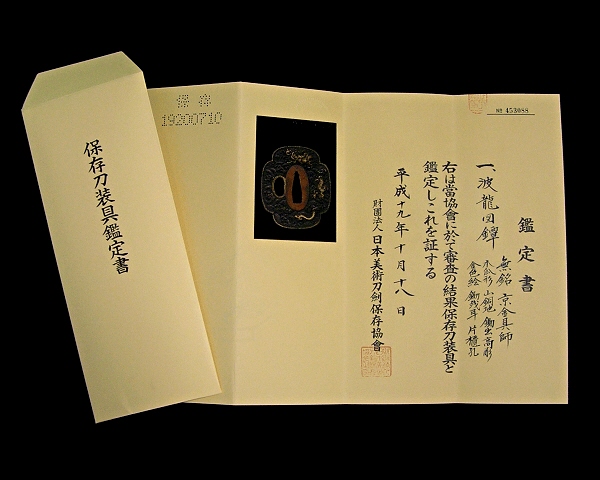 保存刀装具鑑定書
保存
19200710
№ 453088
鑑定書
一、波龍図鐔 無銘 京金具師
木瓜形 山銅地 鋤出高彫
金色絵 鋤残耳 片櫃孔
右は當協會に於て審査の結果保存刀装具と
鑑定しこれを証する
平成十九年十月十八日
財團法人 日本美術刀劍保存協會